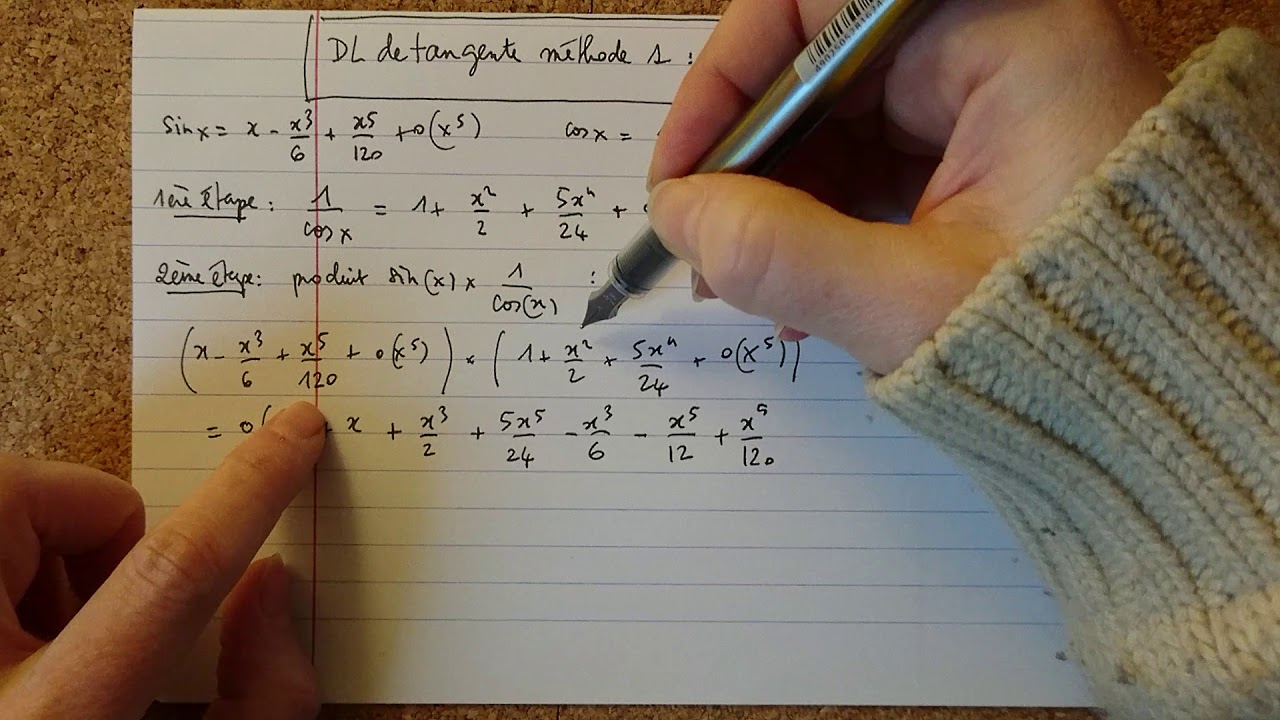 DL de tangente méthode 1 :
sin x = x - x³/6 + x⁵/120 + o(x⁵) cos x =
1ère étape : 1/cos x = 1 + x²/2 + 5x⁴/24 +
2ème étape : produit sin(x) × 1/cos(x) :
(x - x³/6 + x⁵/120 + o(x⁵)) × (1 + x²/2 + 5x⁴/24 + o(x⁵))
= o( + x + x³/2 + 5x⁵/24 - x³/6 - x⁵/12 + x⁵/120